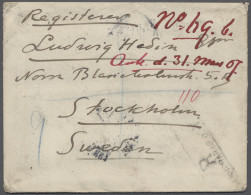 Registered
No 49. b.
Ludwig Hedin
Ank d. 31. Mars 07.
Norra Blasieholmsh 5. A
110
Stockholm
Sweden
R